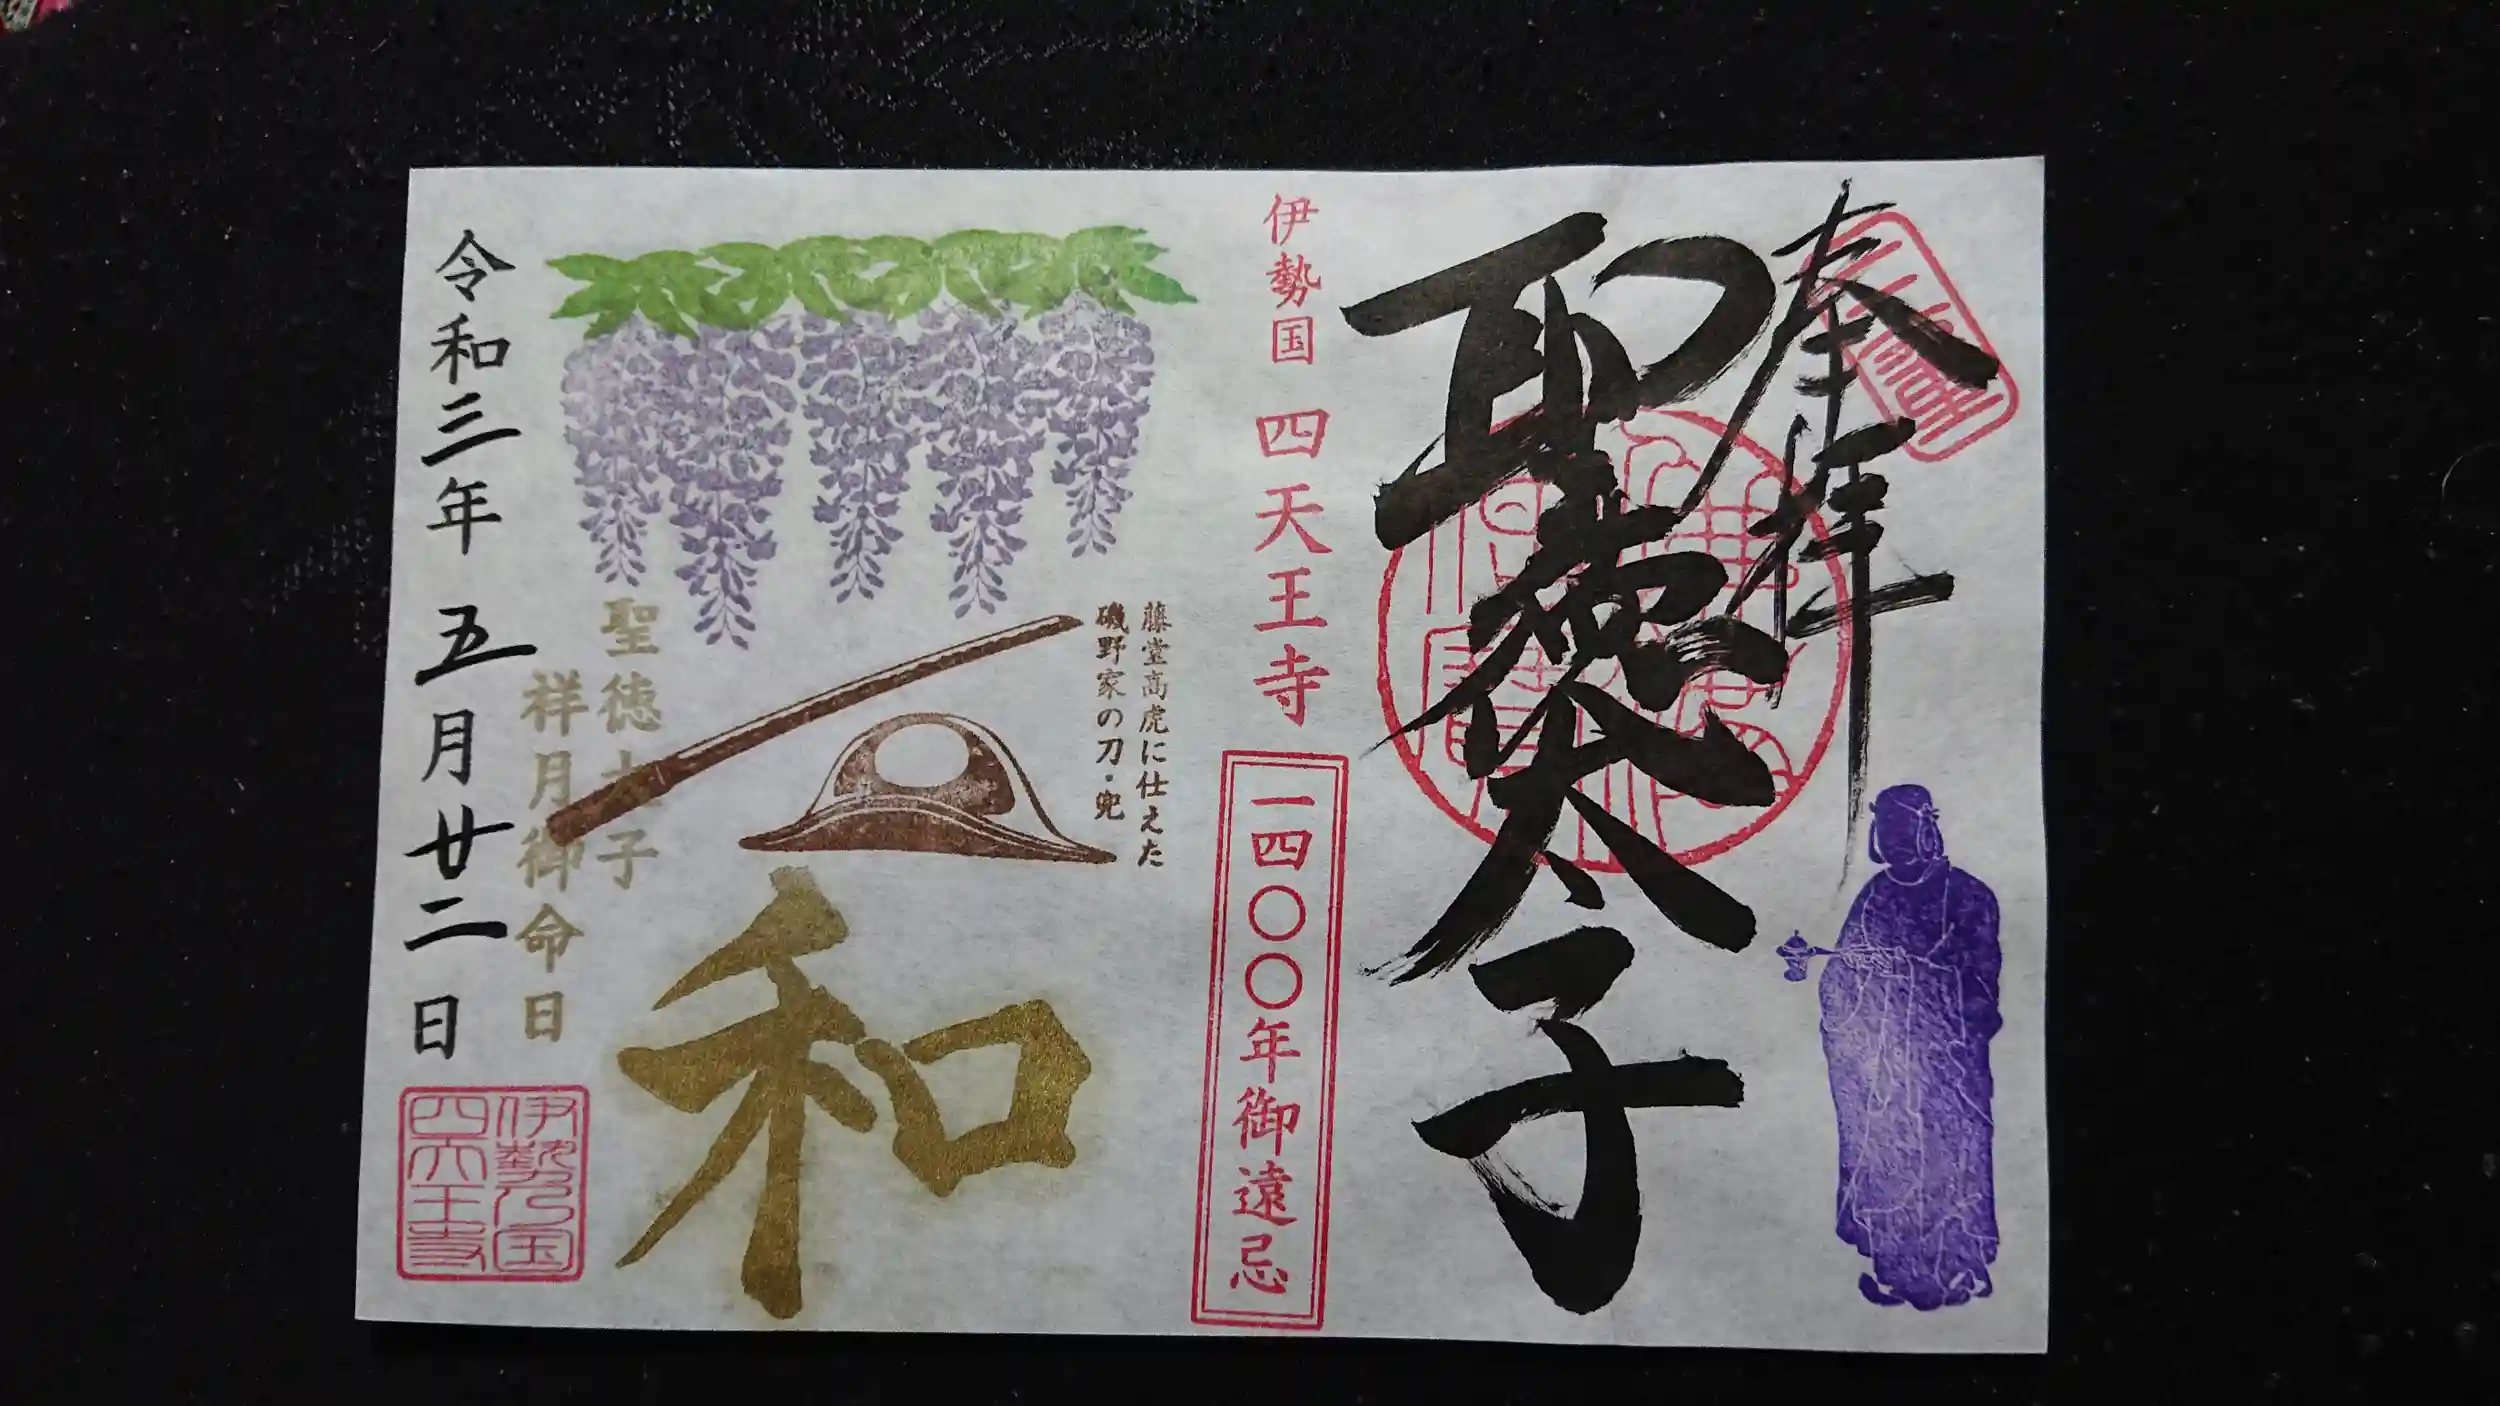 奉拝
聖徳太子
伊勢国 四天王寺
一四〇〇年御遠忌
藤堂高虎に仕えた
磯野家の刀・兜
和
聖徳太子
祥月御命日
令和三年 五月廿二日
伊勢乃国
四天王寺